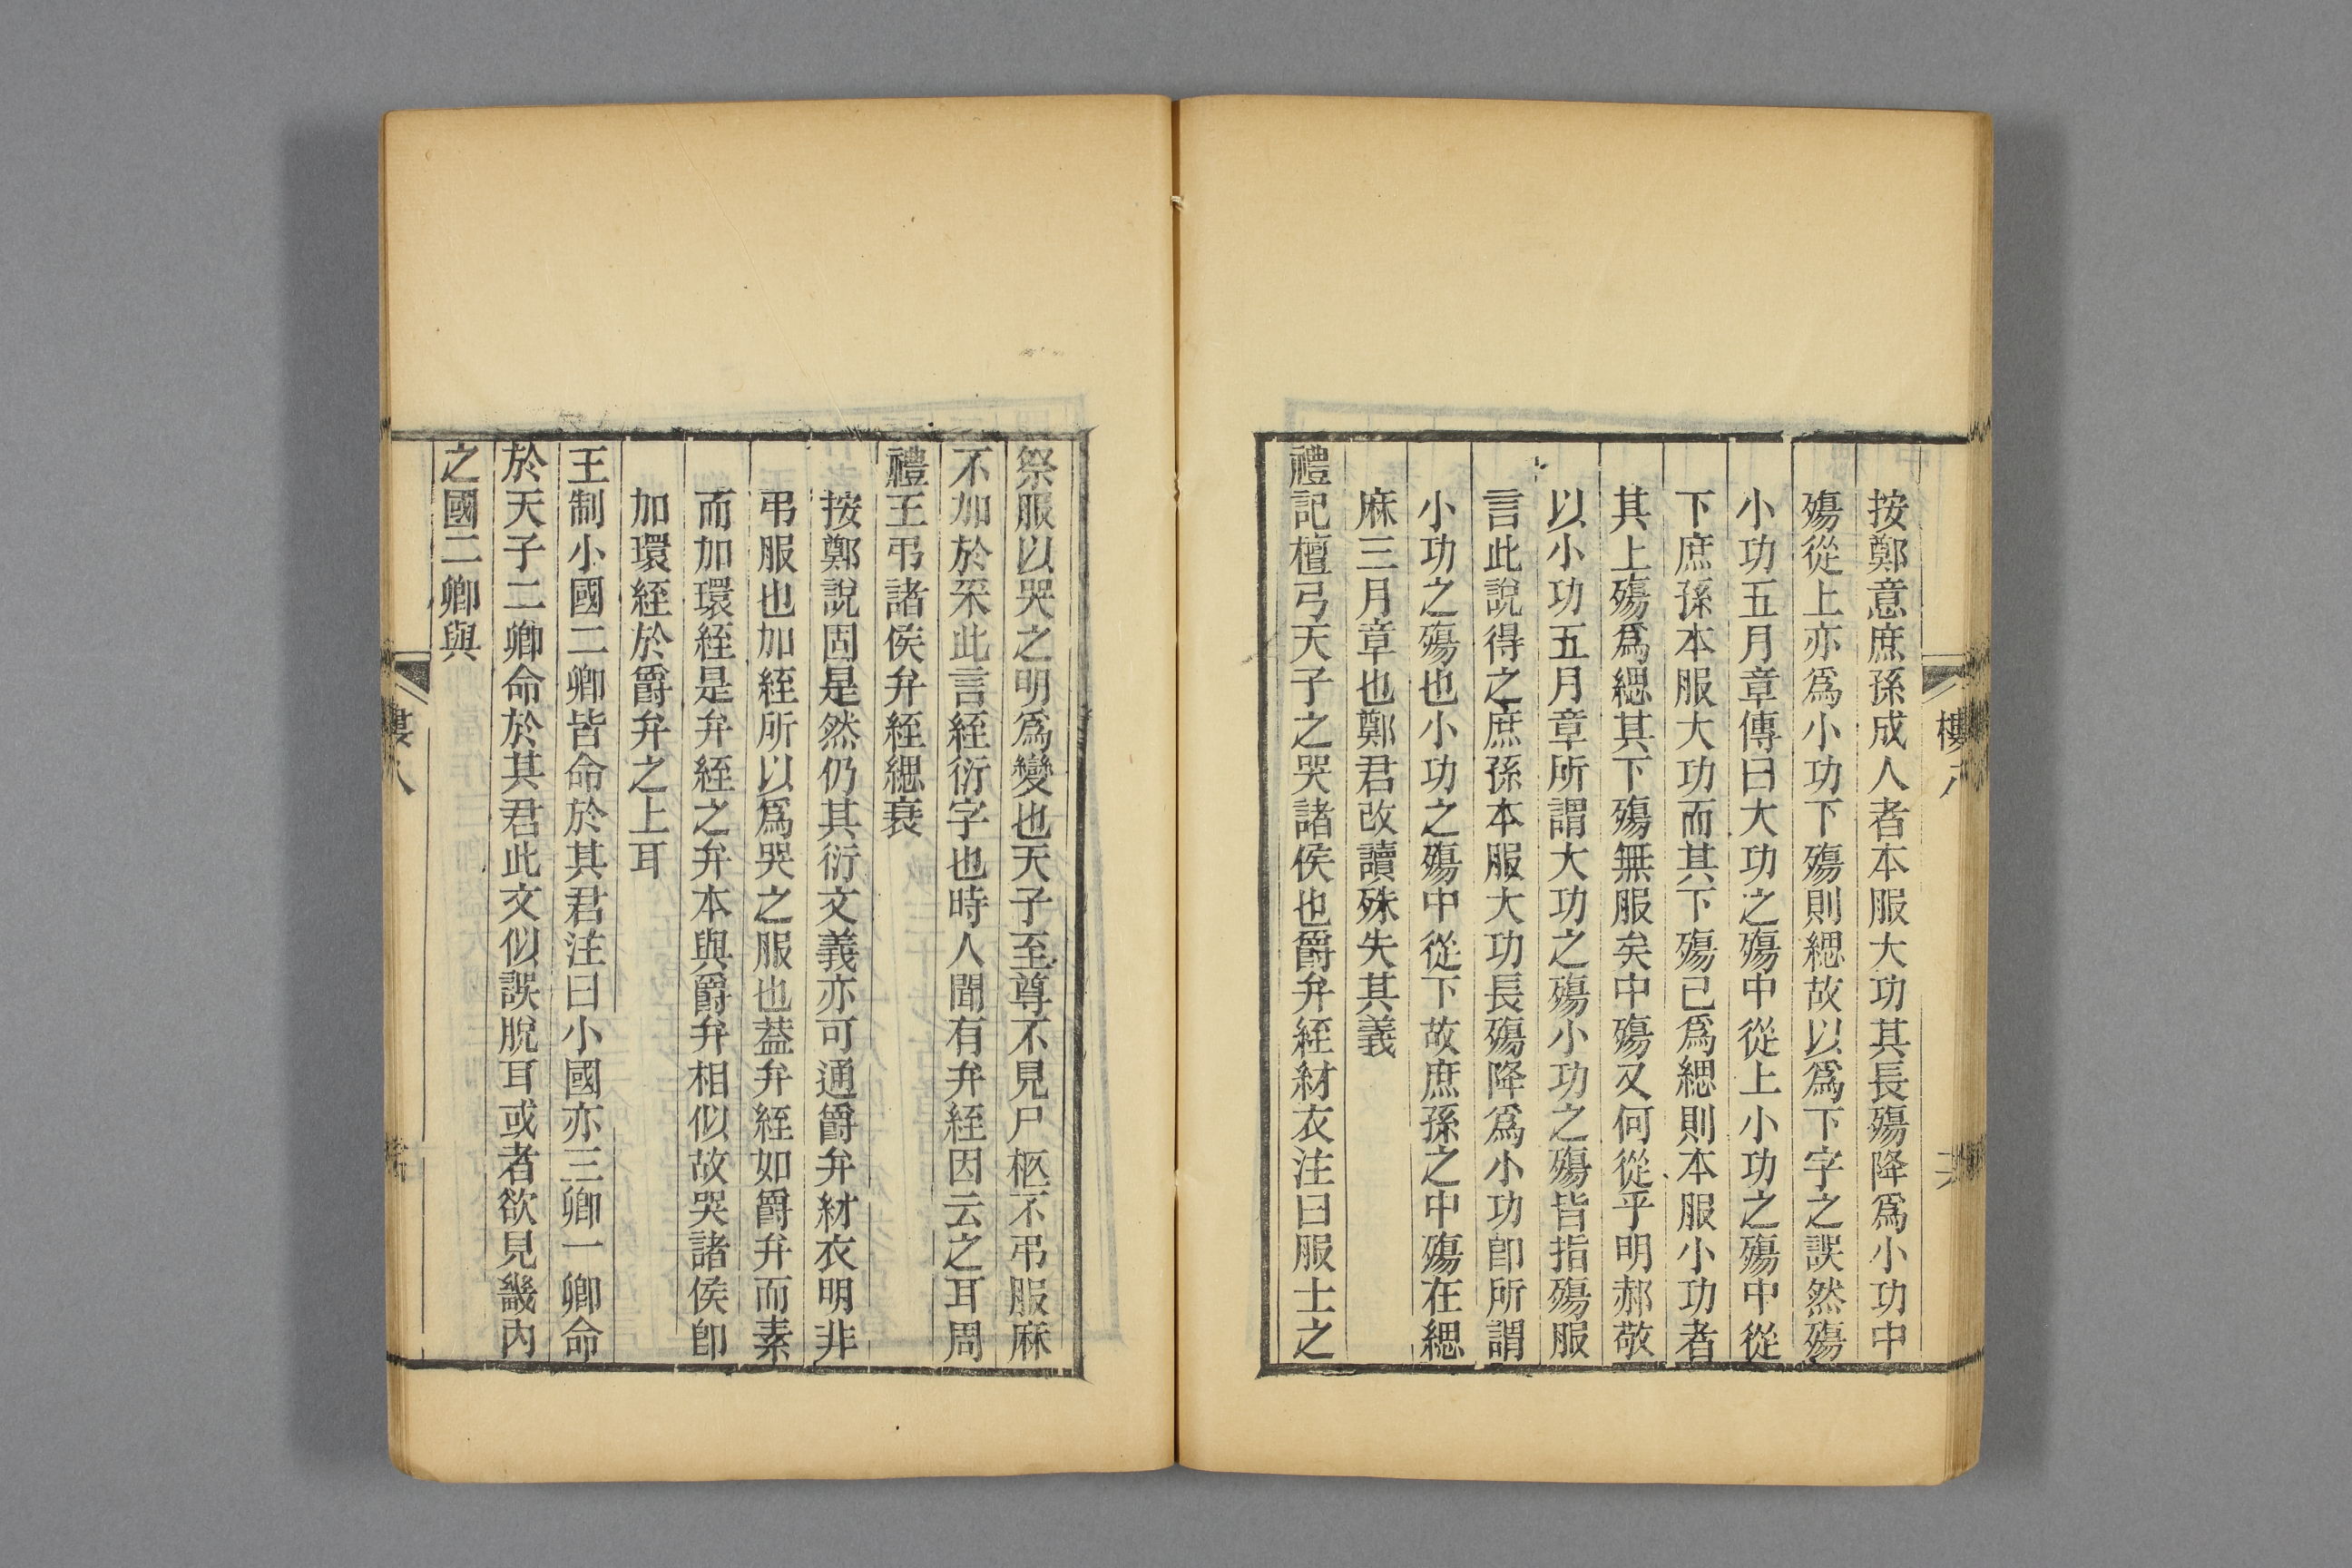 按鄭意庶孫成人者本服大功其長殤降爲小功中
殤從上亦爲小功下殤則緦故以爲下字之誤然殤
小功五月章傳曰大功之殤中從上小功之殤中從
下庶孫本服大功而其下殤已爲緦則本服小功者
其上殤爲緦其下殤無服矣中殤又何從乎明郝敬
以小功五月章所謂大功之殤小功之殤皆指殤服
言此說得之庶孫本服大功長殤降爲小功卽所謂
小功之殤也小功之殤中從下故庶孫之中殤在緦
麻三月章也鄭君改讀殊失其義
禮記檀弓天子之哭諸侯也爵弁絰䊷衣注曰服士之
祭服以哭之明爲變也天子至尊不見尸柩不弔服麻
不加於采此言絰衍字也時人聞有弁絰因云之耳周
禮王弔諸侯弁絰緦衰
按鄭說固是然仍其衍文義亦可通爵弁䊷衣明非
弔服也加絰所以爲哭之服也葢弁絰如爵弁而素
而加環絰是弁絰之弁本與爵弁相似故哭諸侯卽
加環絰於爵弁之上耳
王制小國二卿皆命於其君注曰小國亦三卿一卿命
於天子二卿命於其君此文似誤脫耳或者欲見畿內
之國二卿與
樓八